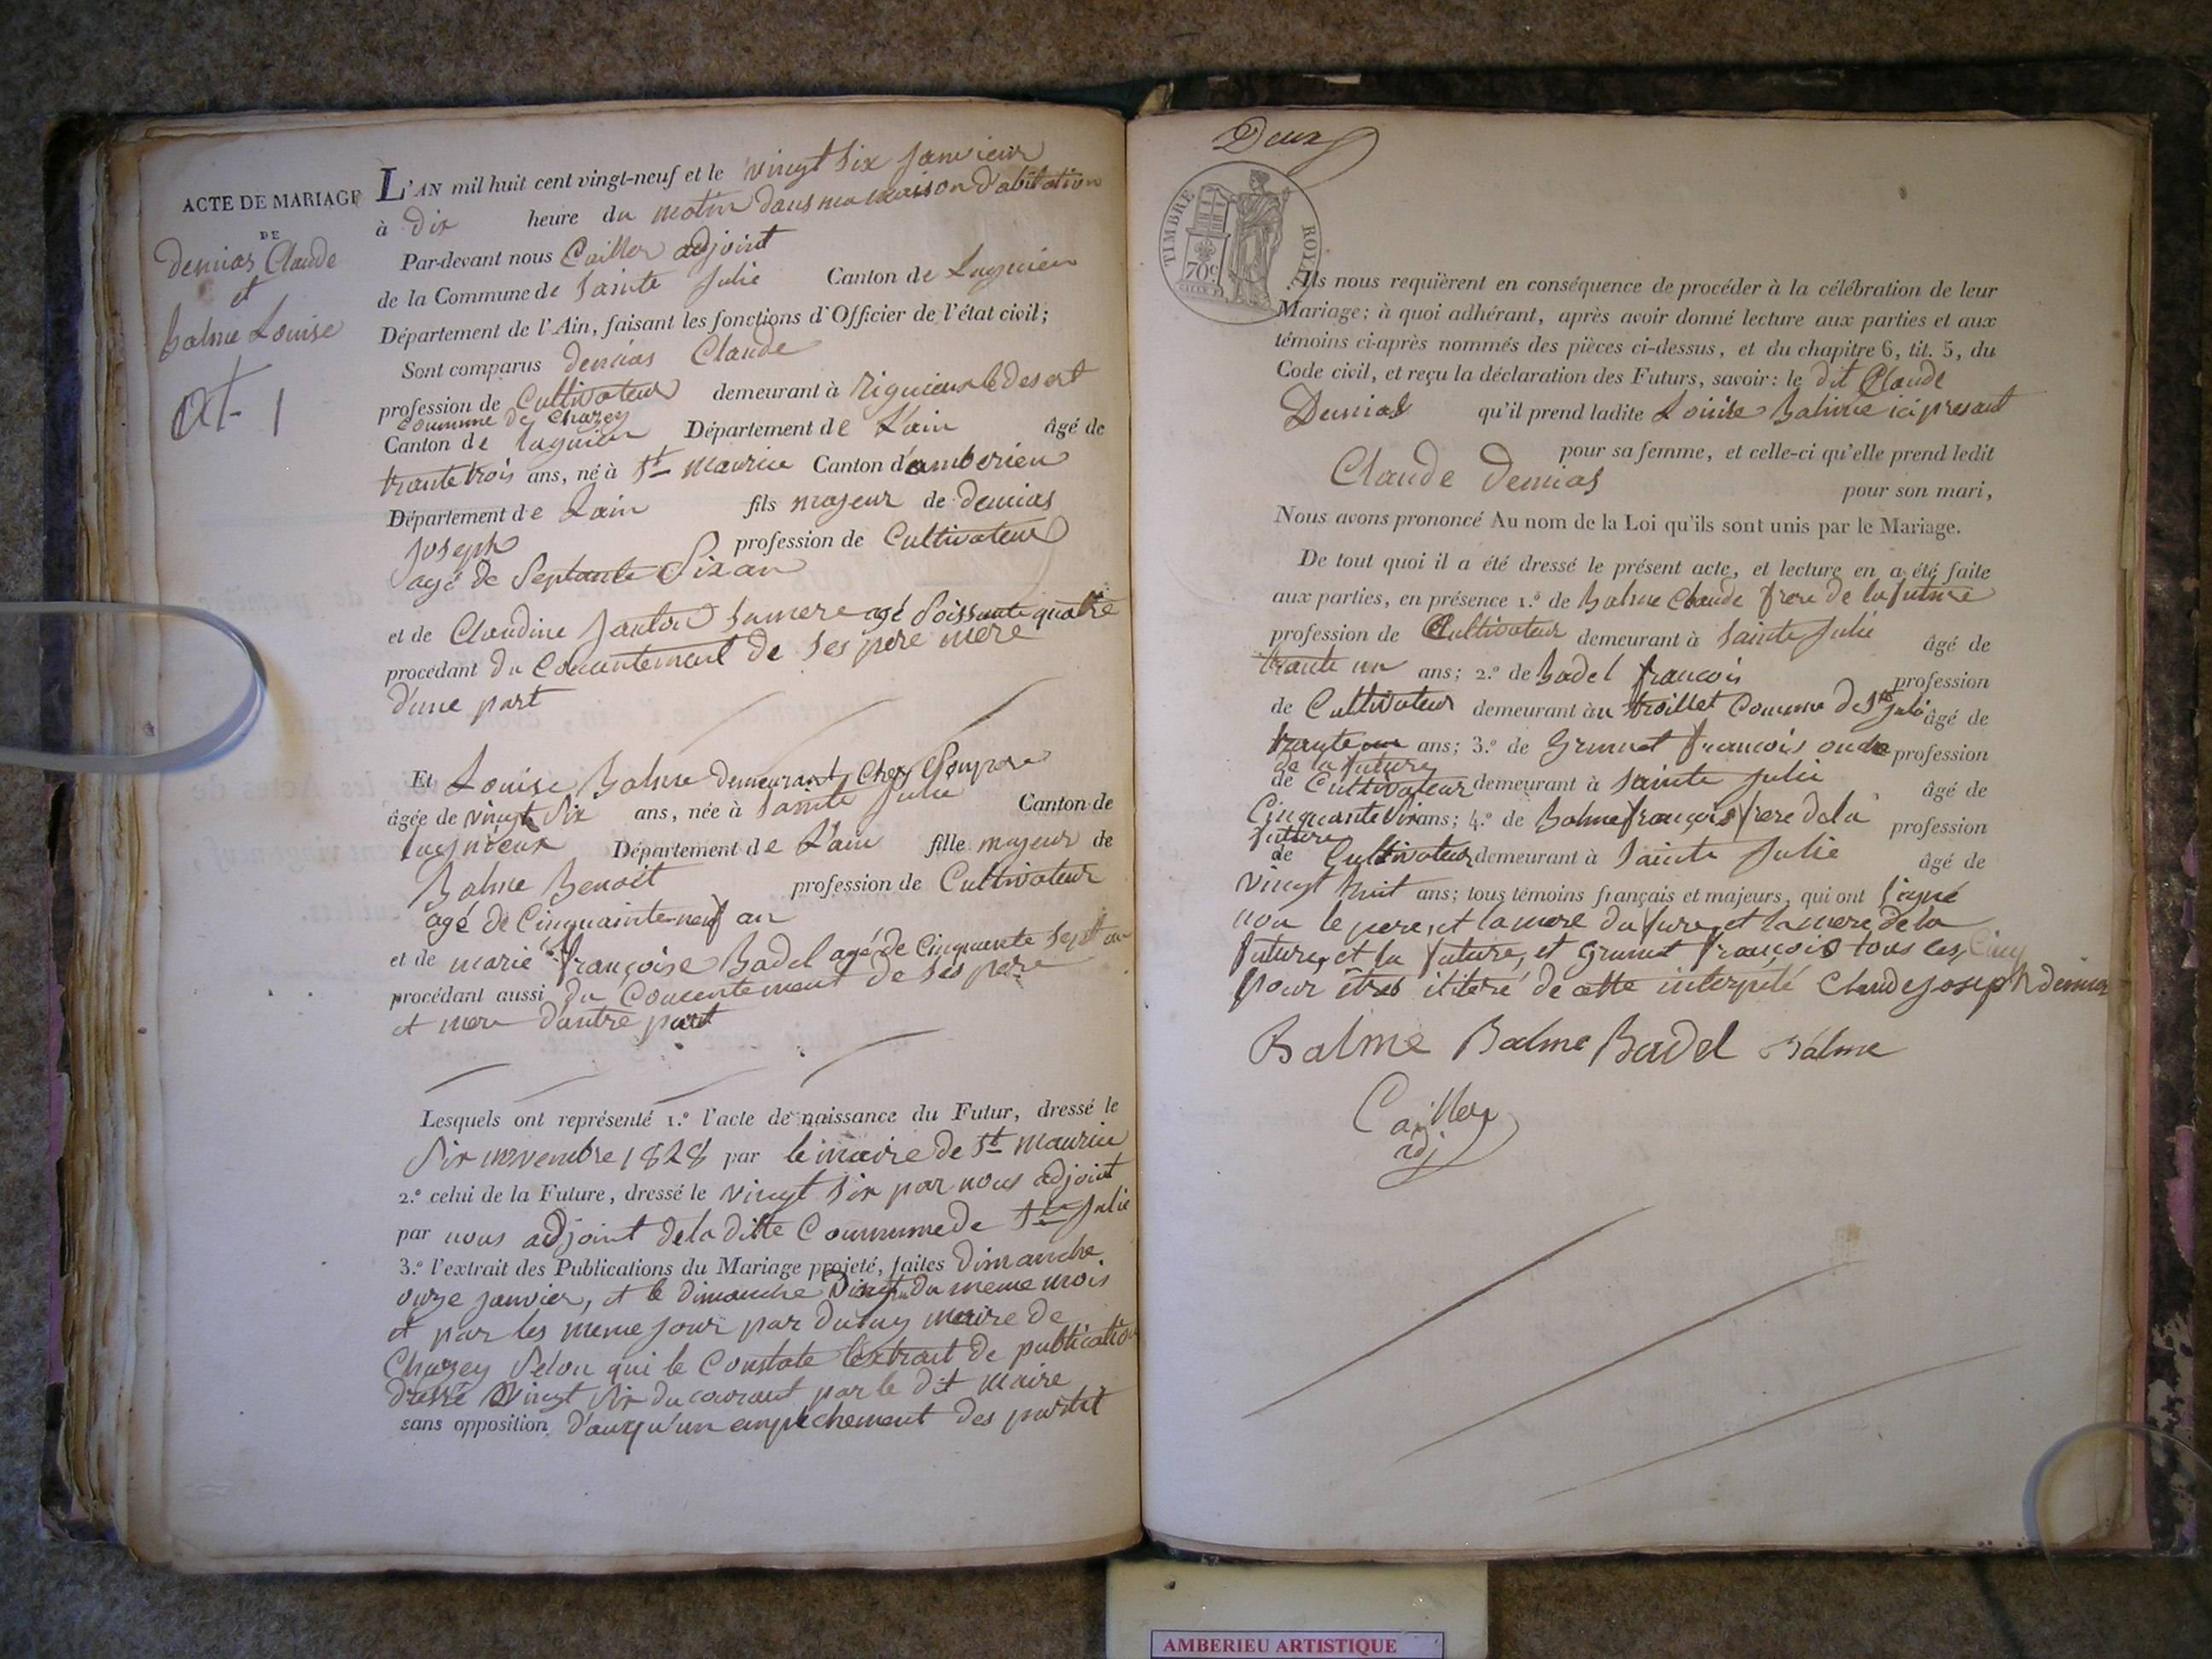 ACTE DE MARIAGE
DE
Demias Claude
et
Balme Louise
at- 1
L'AN mil huit cent vingt-neuf et le vingt six Janvieur
à dix heure du matin dans ma maison d'abitation
Par-devant nous Cailler adjoint
de la Commune de Sainte Julie Canton de Lagnieu
Département de l'Ain, faisant les fonctions d'Officier de l'état civil;
Sont comparus demias Claude
profession de Cultivateur demeurant à Rignieux le desert
commune de Chazey
Canton de lagnieu Département de L'ain âgé de
trante trois ans, né à St Maurice Canton d'amberieu
Département de Lain fils majeur de demias
Joseph profession de Cultivateur
agé de Septante Six an
et de Claudine Janton sa mere agé Soissante quatre
procédant du Concentement de ses pere mere
d'une part
Et Louise Balme demeurant Chez Son pere
âgée de vingt Six ans, née à Sainte Julie Canton de
lagnieux Département de L'ain fille majeur de
Balme Benoit profession de Cultivateur
agé de Cinquainte-neuf an
et de marie françoise Badel agé de Cinquante Sept an
procédant aussi du Concentement de ses pere
et mere d'autre part
Lesquels ont représenté 1.º l'acte de naissance du Futur, dressé le
Six novembre 1828 par le maire de St Maurice
2.º celui de la Future, dressé le vingt Six par nous adjoint
par nous adjoint de la ditte Commune de Ste Julie
3.º l'extrait des Publications du Mariage projeté, faites dimanche
onze janvier, et le dimanche du meme mois
et par les meme jour par Dutuy maire de
Chazey Selon qui le Constate l'extrait de publication
dressé Vingt Six du courant par le dit maire
sans opposition d'auqu'un empechement des partit
Deux
TIMBRE ROYAL
70c
Ils nous requièrent en conséquence de procéder à la célébration de leur
Mariage; à quoi adhérant, après avoir donné lecture aux parties et aux
témoins ci-après nommés des pièces ci-dessus, et du chapitre 6, tit. 5, du
Code civil, et reçu la déclaration des Futurs, savoir: le dit Claude
Demias qu'il prend ladite Louise Balme ici presant
pour sa femme, et celle-ci qu'elle prend ledit
Claude Demias pour son mari,
Nous avons prononcé Au nom de la Loi qu'ils sont unis par le Mariage.
De tout quoi il a été dressé le présent acte, et lecture en a été faite
aux parties, en présence 1.º de Balme Claude frere de la future
profession de Cultivateur demeurant à Sainte Julie âgé de
trante un ans; 2.º de Badel francois profession
de Cultivateur demeurant àu troillet Commune de Ste Julie âgé de
trante ans; 3.º de Grumet francois oncle profession
de la future
de Cultivateur demeurant à Sainte Julie âgé de
Cinquante Six ans; 4.º de Balme françois frere dela profession
future
de Cultivateur demeurant à Sainte Julie âgé de
vingt huit ans; tous témoins français et majeurs, qui ont Signé
non le pere, et la mere du futur et la mere de la
future, et la future, et Grumet françois tous les Cinq
pour être ilitéré de cette interpélé Claude joseph demias
Balme Balme Badel Balme
Cailler
adj
AMBERIEU ARTISTIQUE